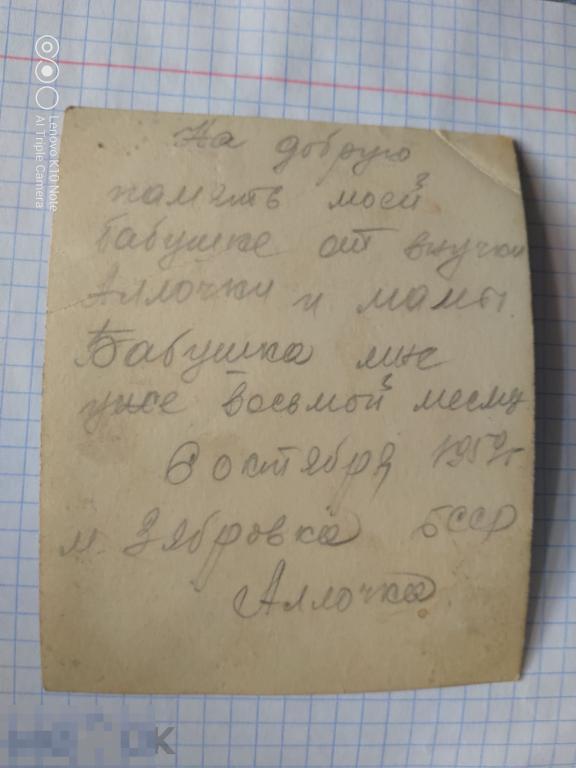 На добрую
память моей
бабушке от внучки
Аллочки и мамы.
Бабушка мне
уже восьмой месяц
6 октября
м. Зябровка БССР
Аллочка.
Lenovo K10 Note
AI Triple Camera